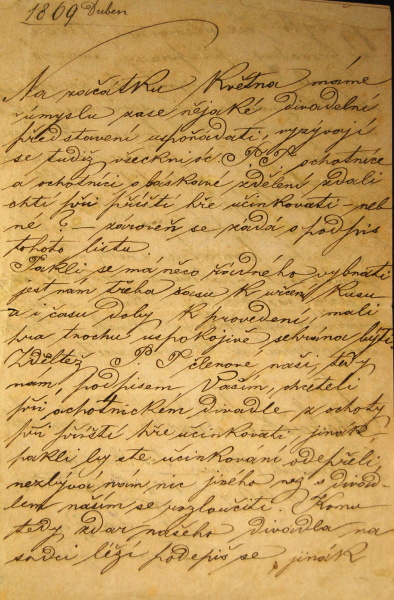 1869 Duben
Na začátku Května máme
v úmyslu zase nějaké divadelní
představení uspořádati, vyzývají
se tudiž všeckny P.T. ochotnice
a ochotníci o láskavé zdělení zdali
chtí při příští hře účinkovati – neb
né? – zároveň se žádá o podpis
tohoto listu.
Jakli se má něco řádného vybrati
jest nám třeba času k určení kusu
a i času doby k provedení, máli
hra trochu uspokojivě sehrána býti.
Zdéltež P T členové naši, tedy
nám podpisem Vaším, chceteli
při ochotnickém divadle z ochoty
při příští hře účinkovati jinak,
pakli by ste účinkovaní odepřeli,
nezbývá nám nic jiného než s divad-
lem naším se rozloučiti. Komu
tedy zdar našeho divadla na
srdci leží podepiš se jinak